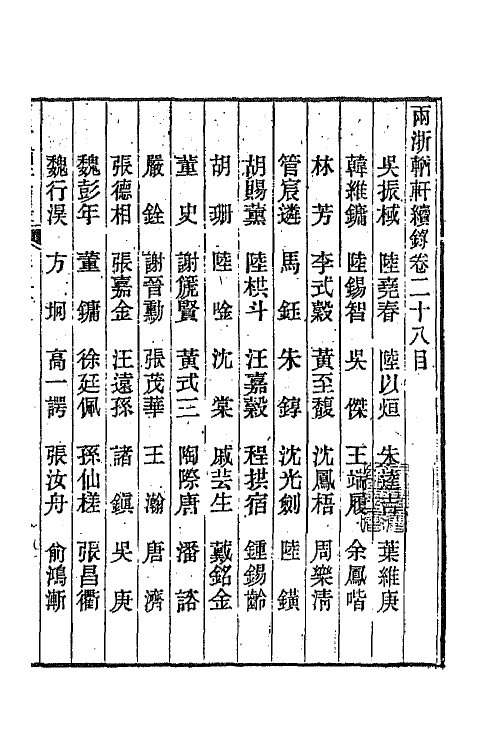 兩浙輶軒續錄卷二十八目
吳振棫 陸堯春 陸以烜 朱逵吉 葉維庚
韓維鏞 陸錫智 吳傑 王端履 余鳳喈
林芳 李式穀 黃至馥 沈鳳梧 周樂清
管宸遴 馬鈺 朱錞 沈光劍 陸鐄
胡賜薰 陸栱斗 汪嘉穀 程拱宿 鍾錫齡
胡珊 陸唫 沈棠 戚芸生 戴銘金
董史 謝篪賢 黃式三 陶際唐 潘諮
嚴銓 謝晉勳 張茂華 王瀚 唐濟
張德相 張嘉金 汪遠孫 諸鎮 吳庚
魏彭年 董鏞 徐廷佩 孫仙槎 張昌衢
魏行淏 方坰 高一諤 張汝舟 俞鴻漸